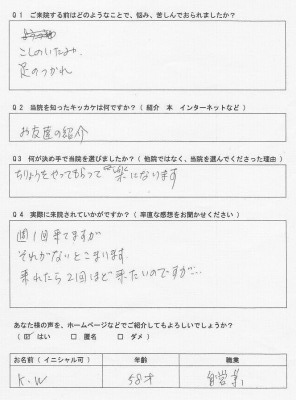 Q1 ご来院する前はどのようなことで、悩み、苦しんでおられましたか？
こしのいたみ
足のつかれ
Q2 当院を知ったキッカケは何ですか？（紹介 本 インターネットなど）
お友達の紹介
Q3 何が決め手で当院を選びましたか？（他院ではなく、当院を選んでくださった理由）
ちりょうをやってもらって 楽になります
Q4 実際に来院されていかがですか？（率直な感想をお聞かせください）
週1回来てますが
それがないとこまります。
来れたら2回ほど来たいのですが…
あなた様の声を、ホームページなどでご紹介してもよろしいでしょうか？
（☑ はい □ 匿名 □ ダメ）
お名前（イニシャル可） 年齢 職業
K.W 58才 自営業